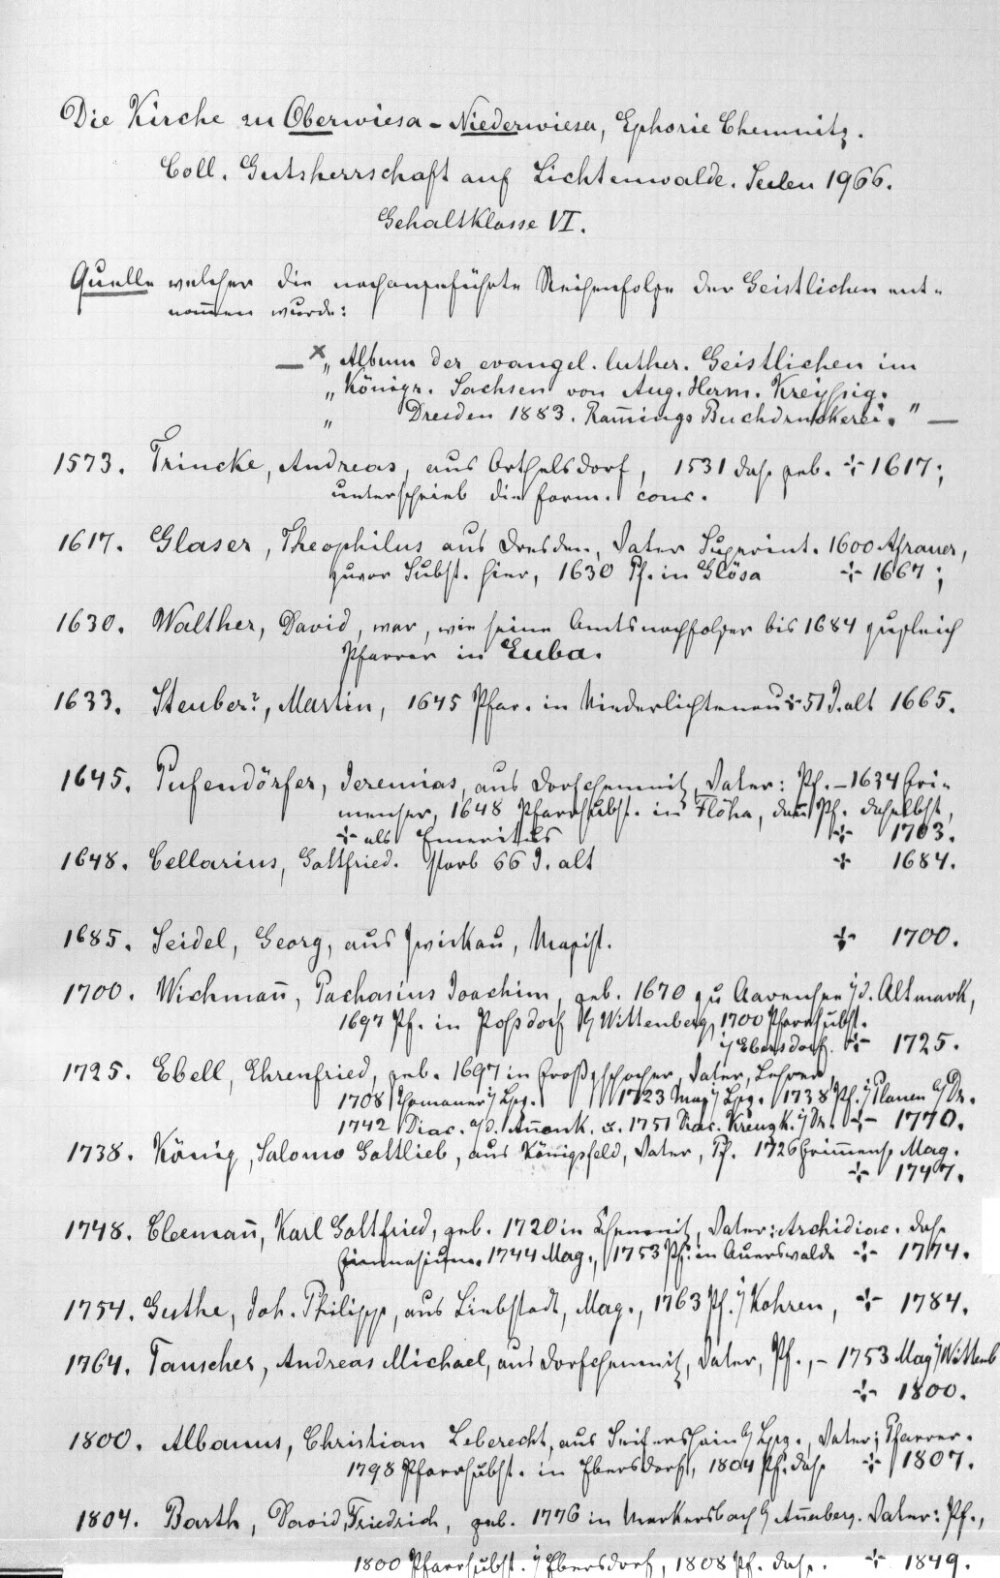 Die Kirche zu Oberwiesa - Niederwiesa, Ephorie Chemnitz.
Coll. Gutsherrschaft auf Lichtenwalde. Seelen 1966.
Gehaltklasse VI.
Quelle welcher die nachangeführte Reihenfolge der Geistlichen ent=
nom̅en wurde:
— x „ Album der evangel. luther. Geistlichen im
„ Königr. Sachsen von Aug. Herm. Kreyssig.
„ Dresden 1883. Ram̅ings Buchdruckerei. " —
1573. Trincke, Andreas, aus Orthelsdorf, 1531 das. geb. ⊹ 1617;
unterschrieb die form. conc.
1617. Glaser, Theophilus aus Dresden, Vater Superint. 1600 Afraner,
zuvor Subst. hier, 1630 Pf. in Glösa ⊹ 1667;
1630. Walther, David, war, wie seine Amtsnachfolger bis 1684 zugleich
Pfarrer in Euba.
1633. Steuber?, Martin, 1645 Pfar. in Niederlichtenau ⊹ 51 J. alt 1665.
1645. Pufendörfer, Jeremias, aus Dorfchemnitz, Vater: Pf. – 1634 Gri=
menser, 1648 Pfarrsubst. in Flöha, dan̅ Pf. daselbst,
⊹ als Emeritus ⊹ 1703.
1648. Cellarius, Gottfried. starb 66 J. alt ⊹ 1684.
1685. Seidel, Georg, aus Zwickau, Magist. ⊹ 1700.
1700. Wichman̅, Pachasius Joachim, geb. 1670 zu Aarensee i/d. Altmark,
1697 Pf. in Possdorf b/ Wittenberg, 1700 Pfarrsubst.
i/ Ebersdorf. ⊹ 1725.
1725. Ebell, Ehrenfried, geb. 1697 in Großzschocher, Vater, Lehrer,
1708 Thomaner i/ Lpzg. 1723 Mag i/ Lpzg. 1738 Pf. i/ Plauen b/ Dr.
1742 Diac. a/d. An̅enk. u. 1751 Diac. Kreuzk. i/ Dr. ⊹ 1770.
1738. König, Salomo Gottlieb, aus Königsfeld, Vater, Pf. 1726 Grim̅ens. Mag.
⊹ 1747.
1748. Cleeman̅, Karl Gottfried, geb. 1720 in Chemnitz, Vater: Archidiac. das.
Gimnasium. 1744 Mag., 1753 Pf. in Auerswalde ⊹ 1774.
1754. Guthe, Joh. Philipp, aus Liebstadt, Mag., 1763 Pf. i/ Kohren, ⊹ 1784.
1764. Tauscher, Andreas Michael, aus Dorfchemnitz, Vater, Pf., – 1753 Mag i/ Wittenb
⊹ 1800.
1800. Albanus, Christian Leberecht, aus Seifershain b/ Lpzg., Vater; Pfarrer.
1798 Pfarrsubst. in Ebersdorf, 1804 Pf. das. ⊹ 1807.
1804. Barth, David Friedrich, geb. 1776 in Markersbach b/ An̅aberg. Vater: Pf.,
1800 Pfarrsubst. i/ Ebersdorf, 1808 Pf. das. ⊹ 1849.